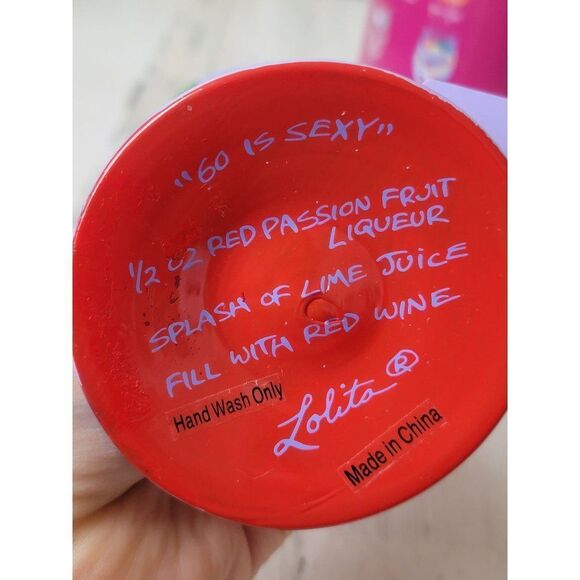 "60 IS SEXY"
1/2 OZ RED PASSION FRUIT
LIQUEUR
SPLASH OF LIME JUICE
FILL WITH RED WINE
Hand Wash Only
Lolita ®
Made in China